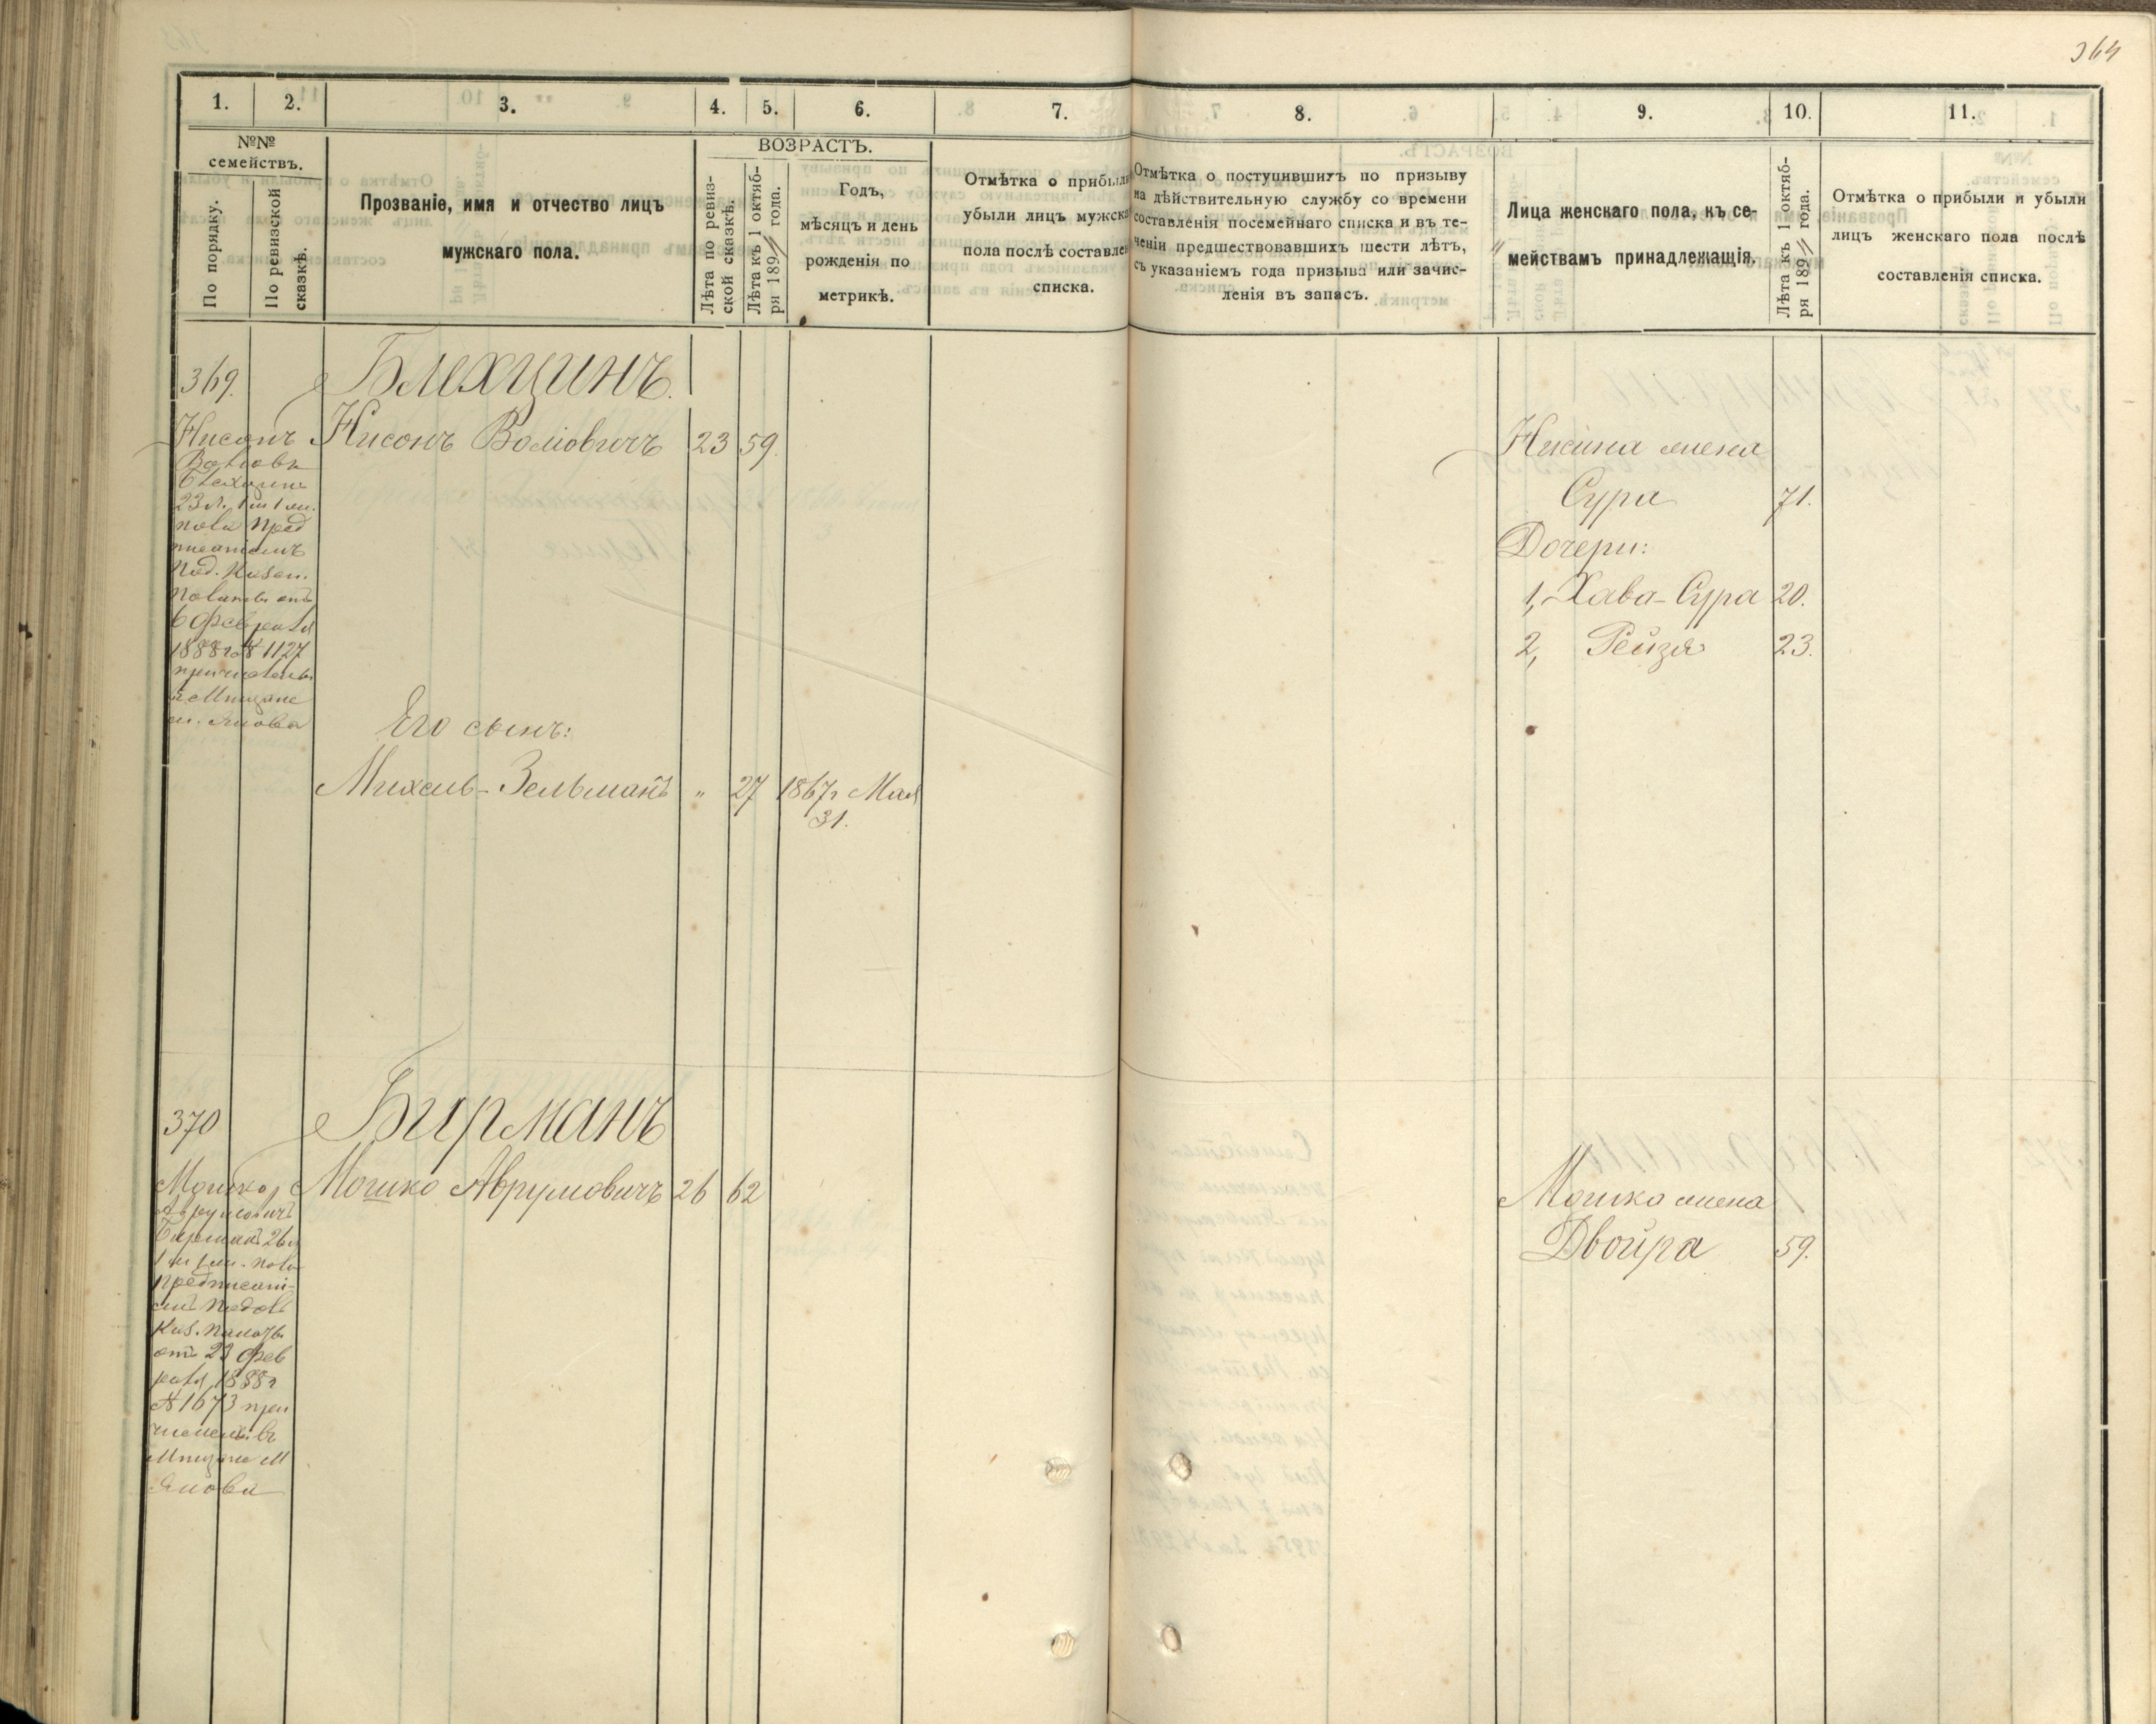 364
1. 2. 3. 4. 5. 6. 7. 8. 9. 10. 11.
№№
семействъ.
По порядку.
По ревизской
сказкѣ.
Прозваніе, имя и отчество лицъ
мужскаго пола.
ВОЗРАСТЪ.
Лѣта по ревиз-
ской сказкѣ.
Лѣта къ 1 октяб-
ря 189 года.
Годъ,
мѣсяцъ и день
рожденія по
метрикѣ.
Отмѣтка о прибыли
убыли лицъ мужска
пола послѣ составлен
списка.
Отмѣтка о поступившихъ по призыву
на дѣйствительную службу со времени
составленія посемейнаго списка и въ те-
ченіи предшествовавшихъ шести лѣтъ,
съ указаніемъ года призыва или зачис-
ленія въ запасъ.
Лица женскаго пола, къ се-
мействамъ принадлежащія.
Лѣта къ 1 октяб-
ря 189 года.
Отмѣтка о прибыли и убыли
лицъ женскаго пола послѣ
составленія списка.
369.
Блехцинъ.
Нисонъ Воліовичъ 23 59.
Нисонъ
Блехцинъ
23 л. 1 м 1 жен.
пола Пред
писаніемъ
Каз.
Палаты отъ
6 февраля
1888 г № 1127
причислены
въ Мищане
м. Янова
Его сынъ:
Михель-Зельманъ " 27 1867г Мая
31.
жена
Сура 71.
Дочери:
1, Хава-Сура 20.
2, Рейзя 23.
370
Бирманъ
Мошко Аврумовичъ 26 62
Мошко
Аврумовичъ
Бирманъ 26 л
1 м 1 жен. пола
Предписані-
емъ
Каз. Палаты
отъ 23 фев
раля 1888 г
№ 1673 при
числены въ
Мищане М
Янова
Мошко жена
Двойра 59.